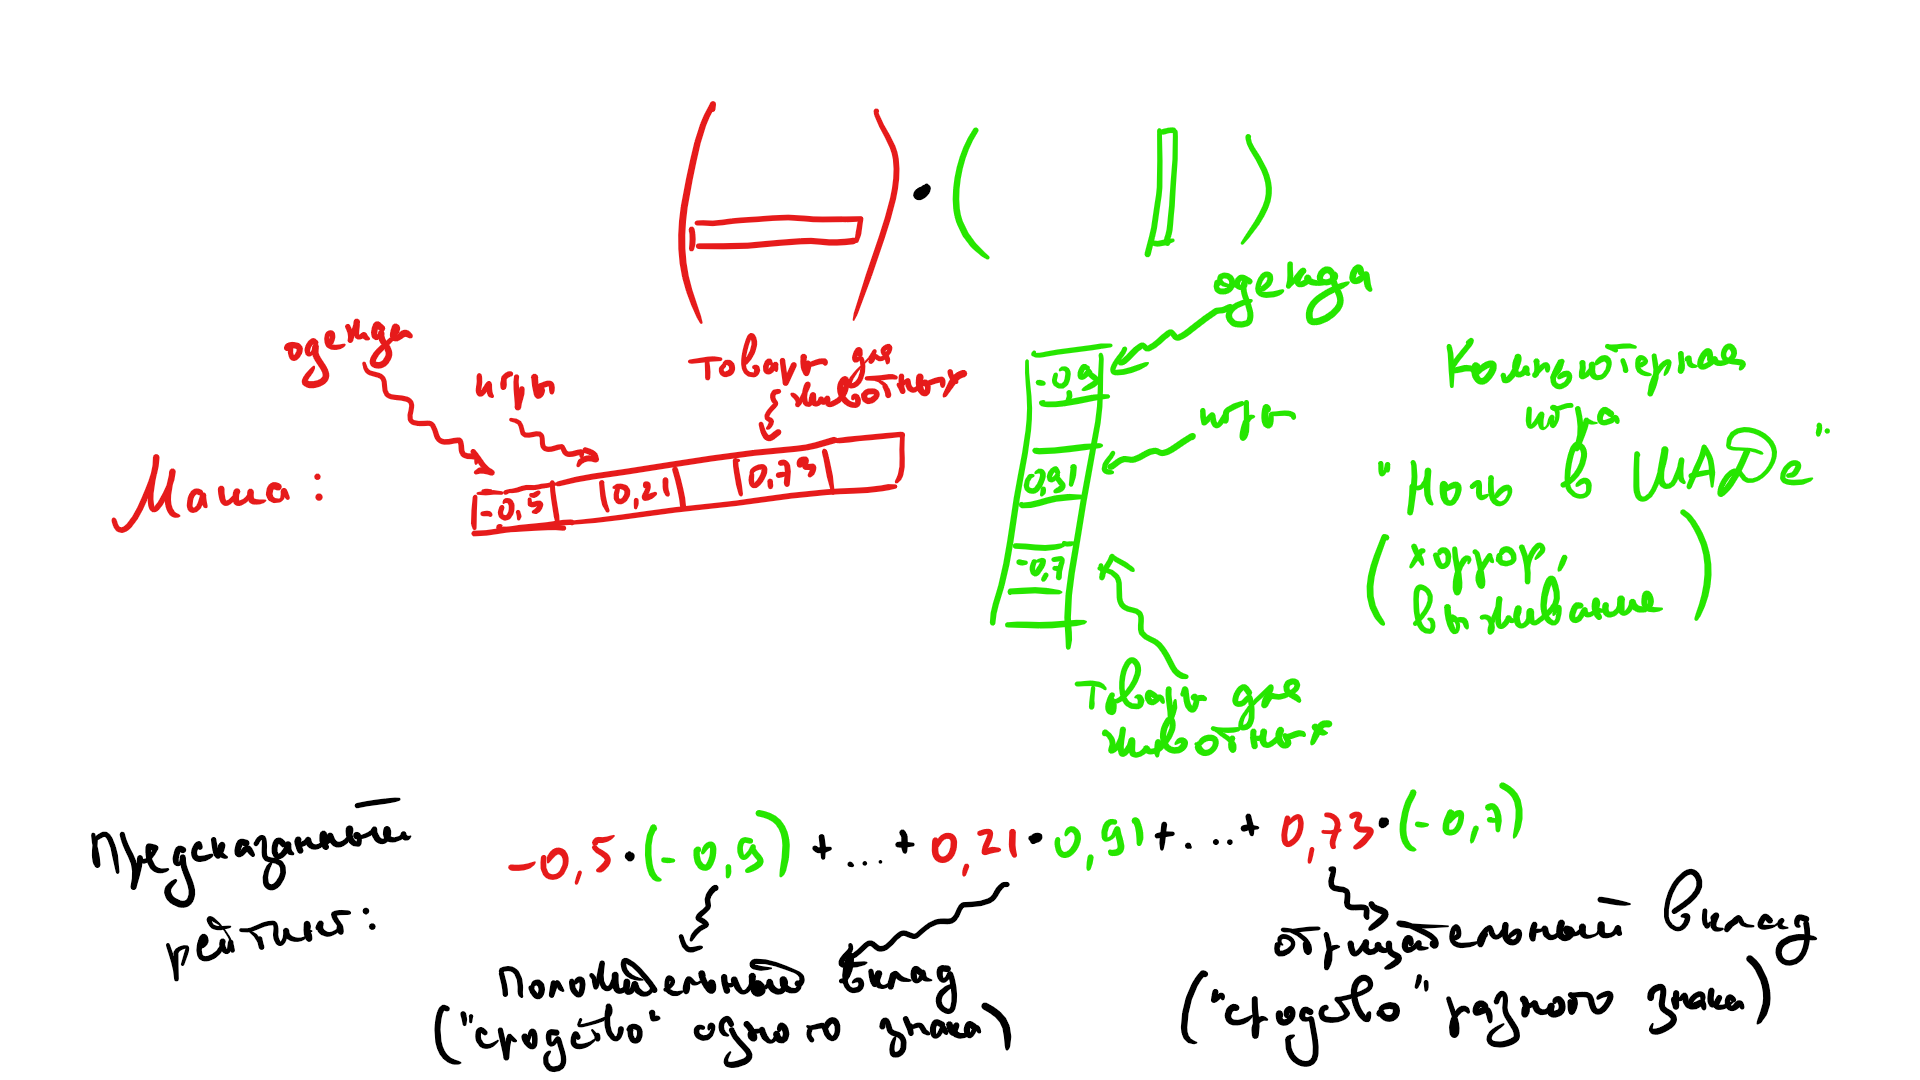 одежда
одежда
игры
товары для
животных
Маша:
-0,5
0,21
0,73
-0,9
игры
0,91
-0,7
товары для
животных
Компьютерная
игра
"Ночь в ШАДе"
(хоррор,
выживание)
Предсказанный
рейтинг:
-0,5·(-0,9) + ... + 0,21·0,91 + ... + 0,73·(-0,7)
Положительный вклад
("сродство" одного знака)
отрицательный вклад
("сродство" разного знака)